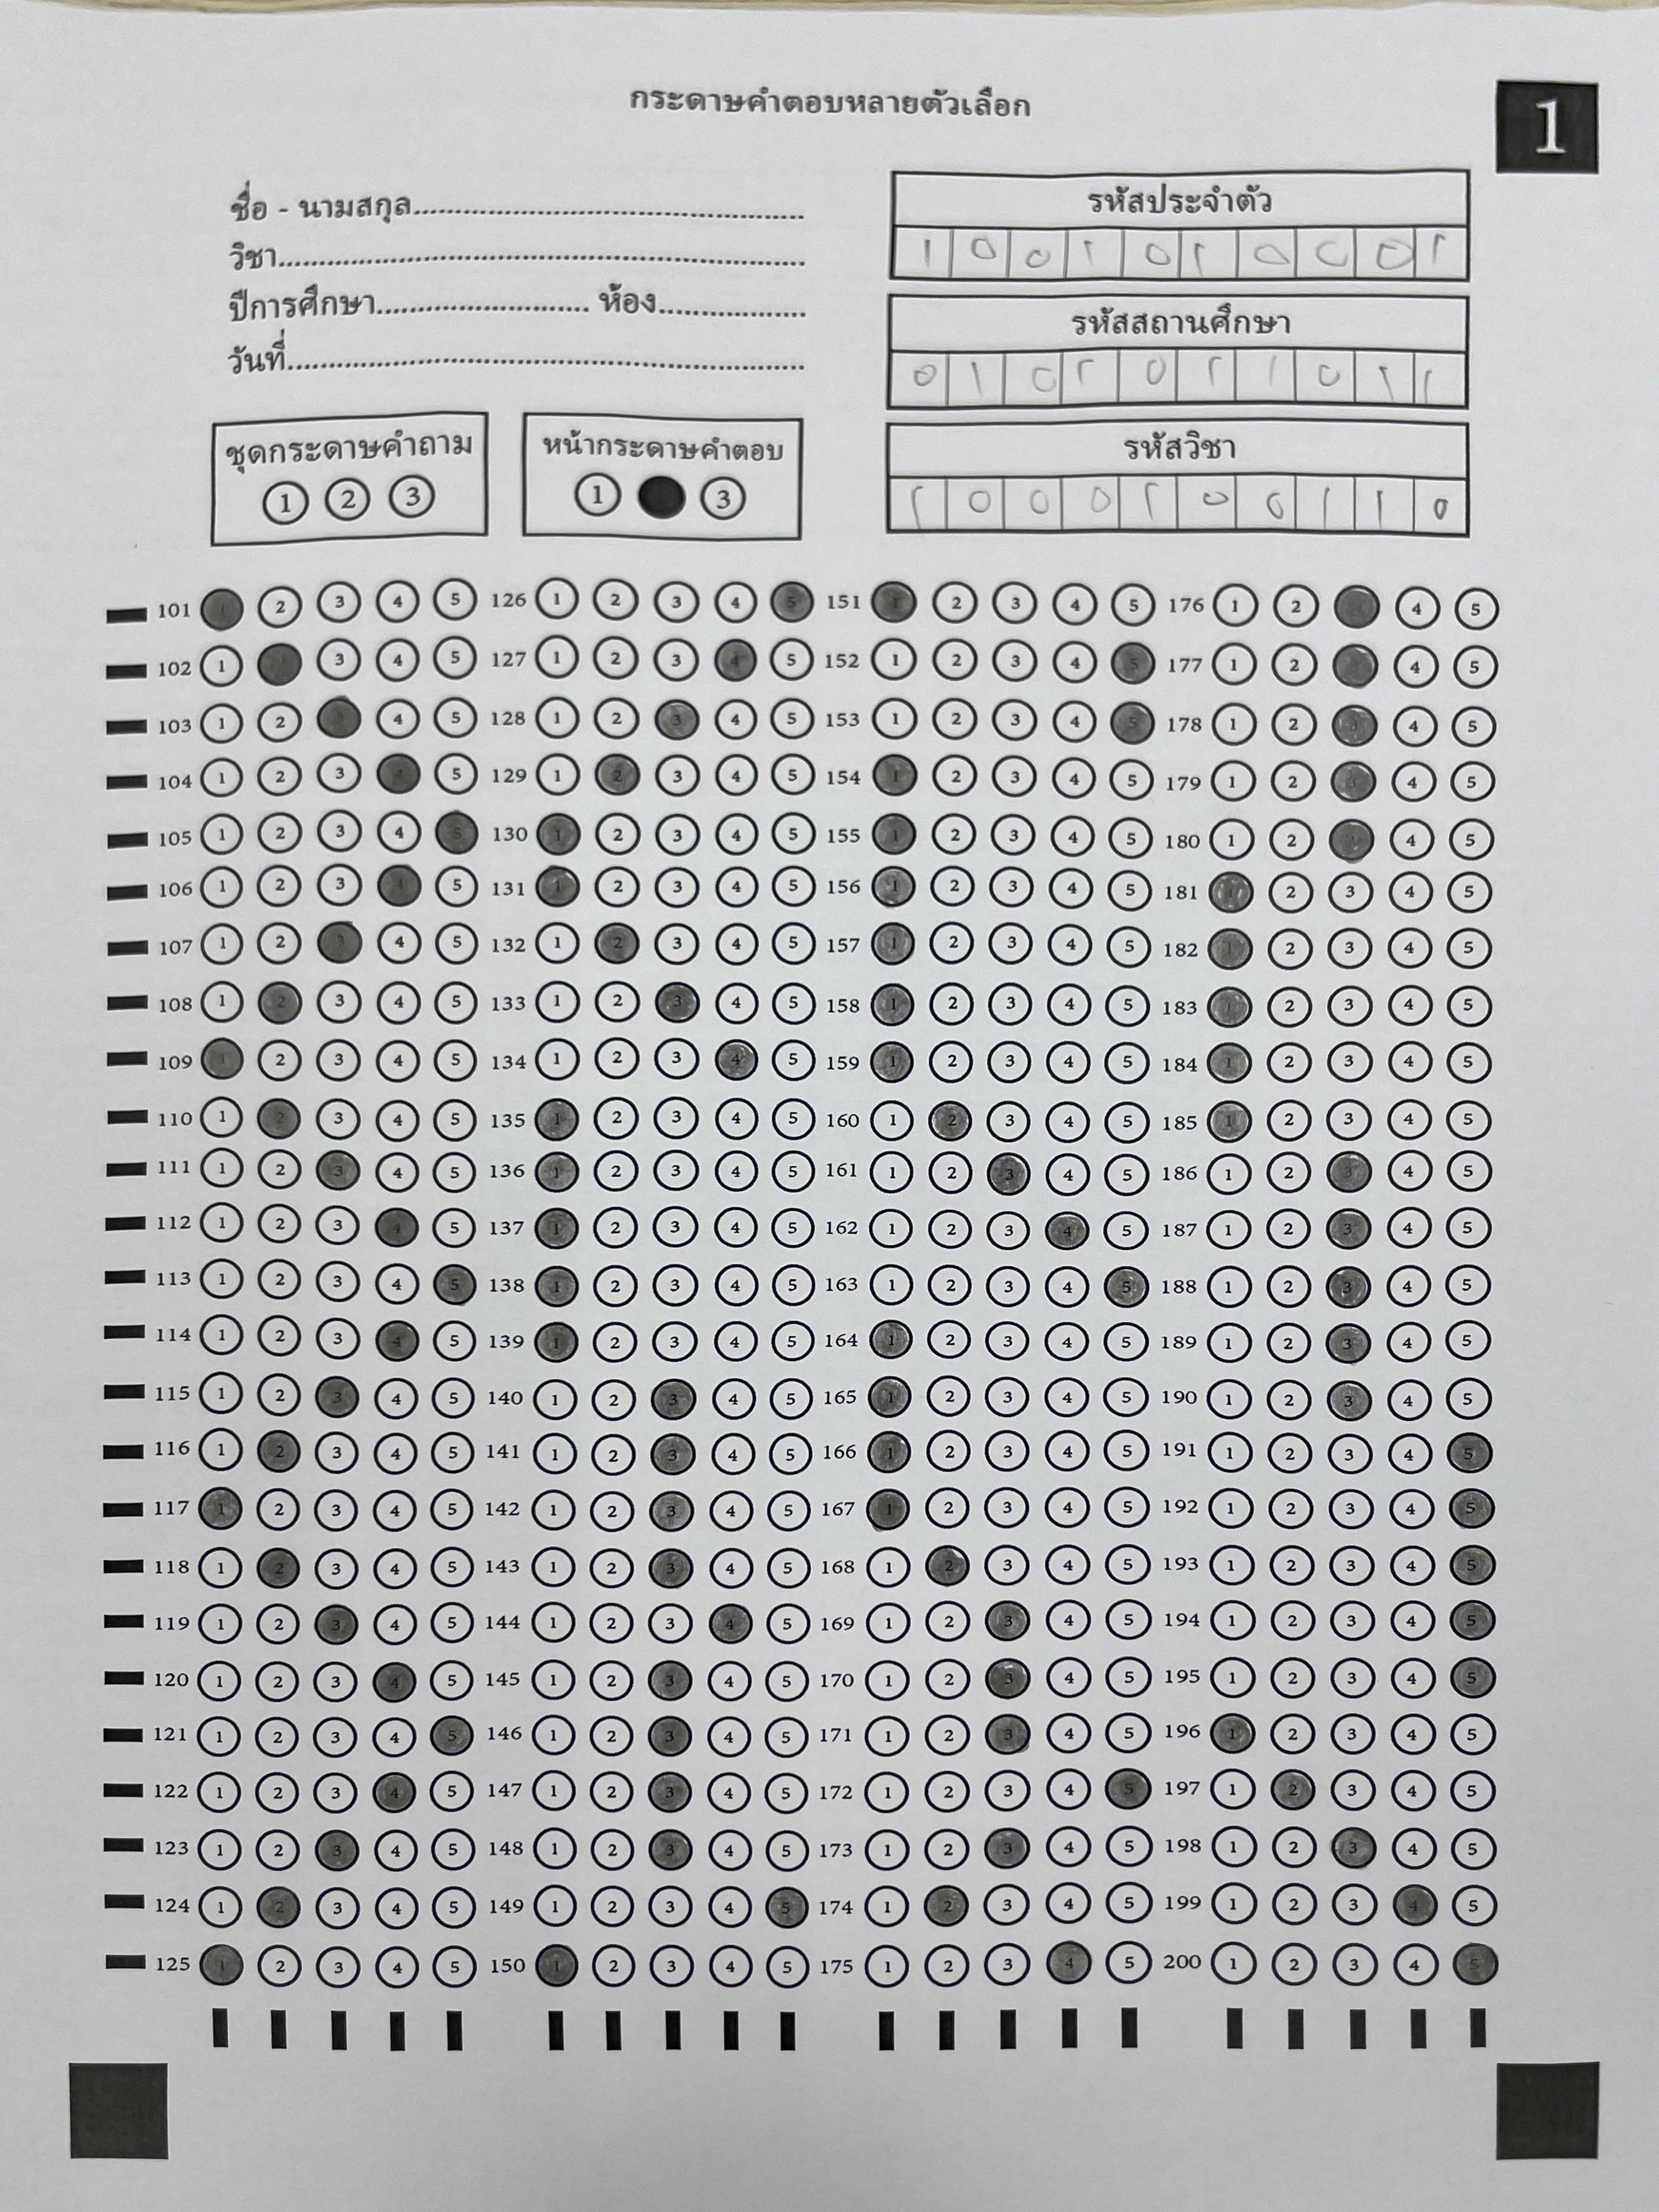 กระดาษคำตอบหลายตัวเลือก
1
ชื่อ - นามสกุล
วิชา
ปีการศึกษา ห้อง
วันที่
รหัสประจำตัว
1 0 0 1 0 1 0 0 0 1
รหัสสถานศึกษา
0 1 0 1 0 1 1 0 1 1
รหัสวิชา
1 0 0 0 1 0 0 1 1 0
ชุดกระดาษคำถาม
1 2 3
หน้ากระดาษคำตอบ
1 3
101 2 3 4 5 126 1 2 3 4 5 151 1 2 3 4 5 176 1 2 4 5
102 1 3 4 5 127 1 2 3 4 5 152 1 2 3 4 5 177 1 2 4 5
103 1 2 3 4 5 128 1 2 3 4 5 153 1 2 3 4 5 178 1 2 3 4 5
104 1 2 3 4 5 129 1 2 3 4 5 154 1 2 3 4 5 179 1 2 3 4 5
105 1 2 3 4 5 130 1 2 3 4 5 155 1 2 3 4 5 180 1 2 3 4 5
106 1 2 3 4 5 131 1 2 3 4 5 156 1 2 3 4 5 181 1 2 3 4 5
107 1 2 3 4 5 132 1 2 3 4 5 157 1 2 3 4 5 182 1 2 3 4 5
108 1 2 3 4 5 133 1 2 3 4 5 158 1 2 3 4 5 183 1 2 3 4 5
109 1 2 3 4 5 134 1 2 3 4 5 159 1 2 3 4 5 184 1 2 3 4 5
110 1 2 3 4 5 135 1 2 3 4 5 160 1 2 3 4 5 185 1 2 3 4 5
111 1 2 3 4 5 136 1 2 3 4 5 161 1 2 3 4 5 186 1 2 3 4 5
112 1 2 3 4 5 137 1 2 3 4 5 162 1 2 3 4 5 187 1 2 3 4 5
113 1 2 3 4 5 138 1 2 3 4 5 163 1 2 3 4 5 188 1 2 3 4 5
114 1 2 3 4 5 139 1 2 3 4 5 164 1 2 3 4 5 189 1 2 3 4 5
115 1 2 3 4 5 140 1 2 3 4 5 165 1 2 3 4 5 190 1 2 3 4 5
116 1 2 3 4 5 141 1 2 3 4 5 166 1 2 3 4 5 191 1 2 3 4 5
117 1 2 3 4 5 142 1 2 3 4 5 167 1 2 3 4 5 192 1 2 3 4 5
118 1 2 3 4 5 143 1 2 3 4 5 168 1 2 3 4 5 193 1 2 3 4 5
119 1 2 3 4 5 144 1 2 3 4 5 169 1 2 3 4 5 194 1 2 3 4 5
120 1 2 3 4 5 145 1 2 3 4 5 170 1 2 3 4 5 195 1 2 3 4 5
121 1 2 3 4 5 146 1 2 3 4 5 171 1 2 3 4 5 196 1 2 3 4 5
122 1 2 3 4 5 147 1 2 3 4 5 172 1 2 3 4 5 197 1 2 3 4 5
123 1 2 3 4 5 148 1 2 3 4 5 173 1 2 3 4 5 198 1 2 3 4 5
124 1 2 3 4 5 149 1 2 3 4 5 174 1 2 3 4 5 199 1 2 3 4 5
125 1 2 3 4 5 150 1 2 3 4 5 175 1 2 3 4 5 200 1 2 3 4 5